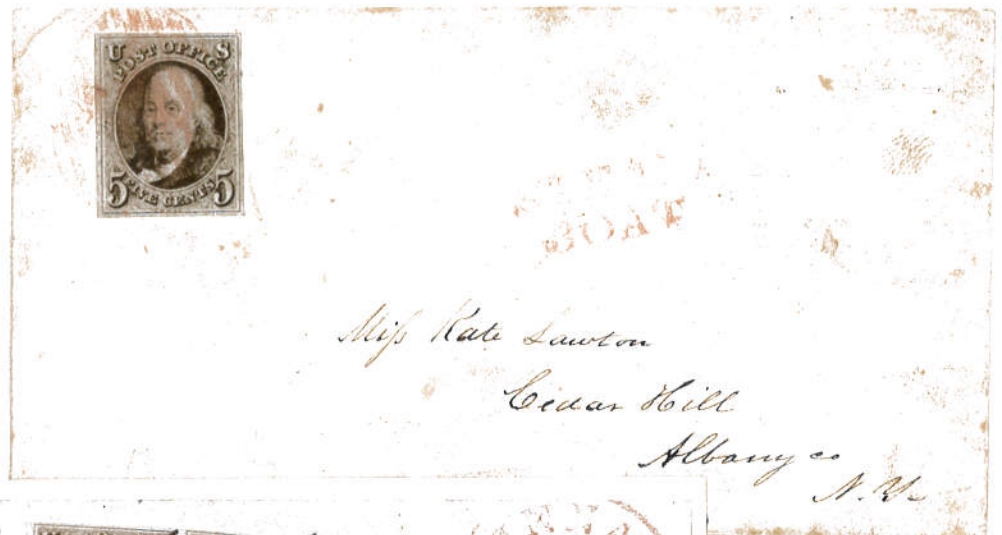 U S
POST OFFICE
5 FIVE CENTS 5
Miſs Kate Lawton
Cedar Hill
Albany co
N. Y.